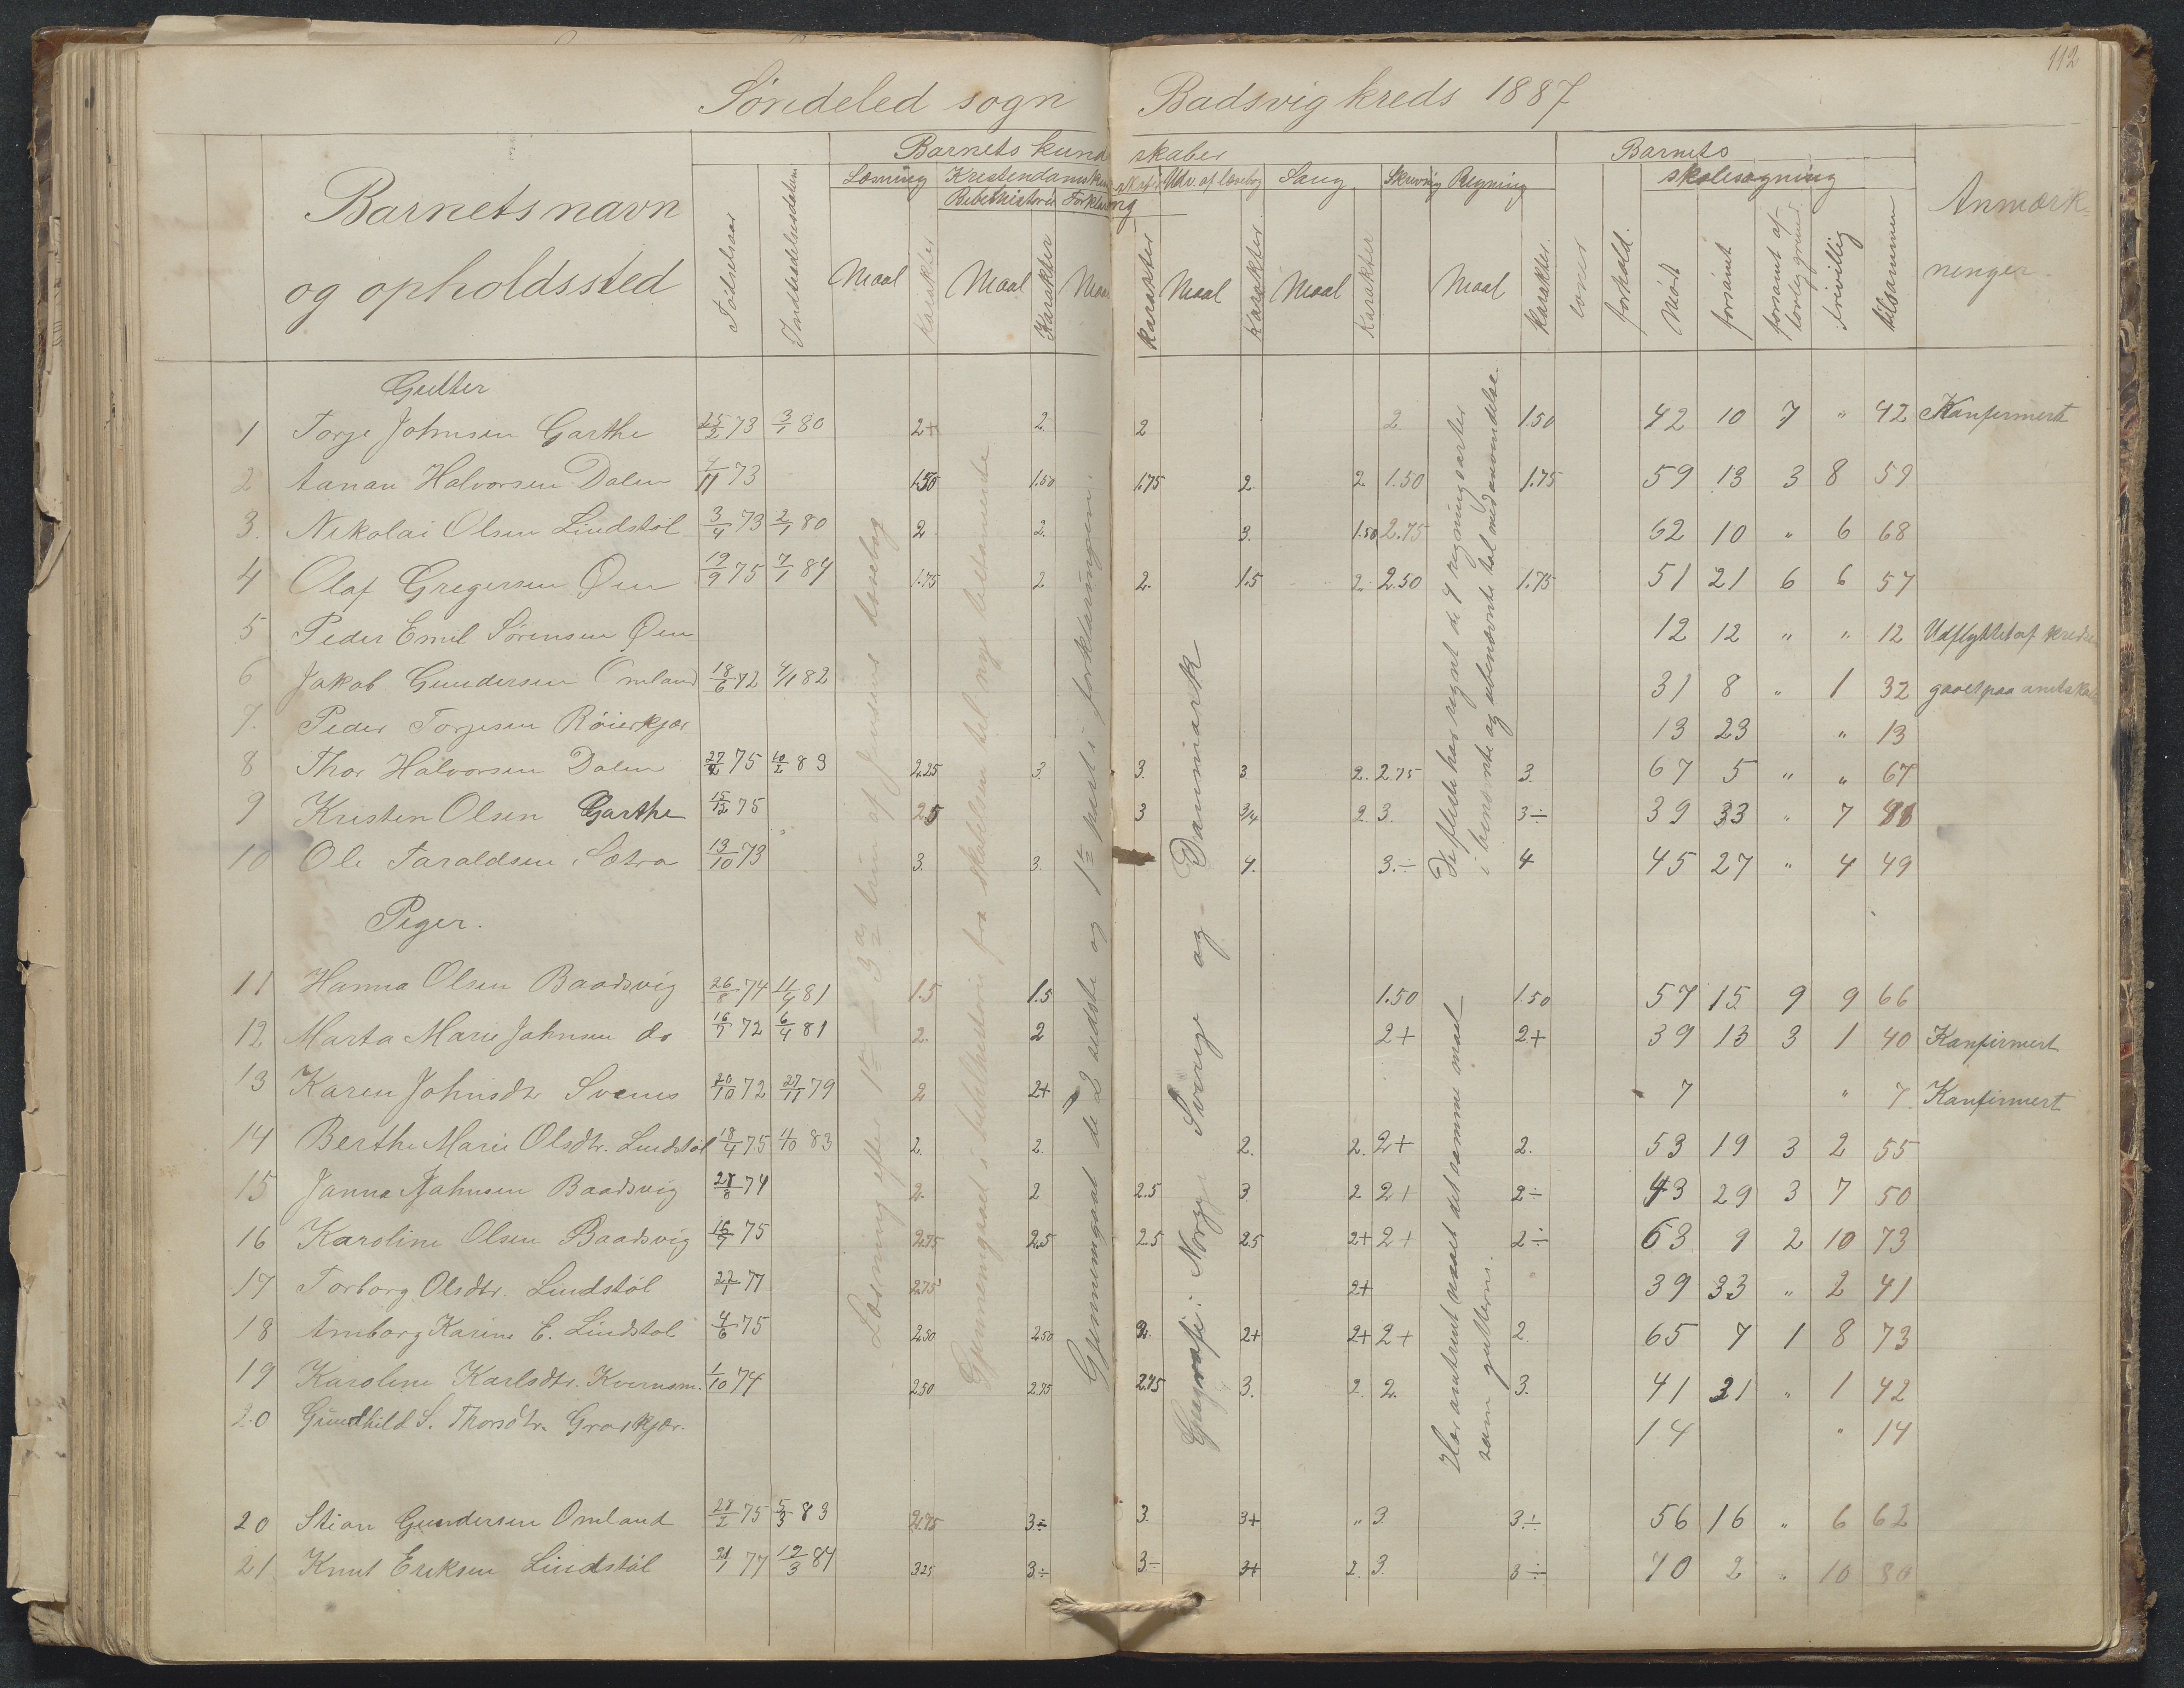 112
Søndeled sogn Badsvig kreds 1887
Barnets kundskaber Barnets
Læsning Kristendomskundskaber Udv. af læsebog Sang Skrivnig Regning skolesøgning
Bibelhistorie Forklaring
Barnets navn og opholdssted
Anmærkninger
Fødselsaar Indtrædelsesdatum Maal Karakter Maal Karakter Maal Karakter Maal Karakter Maal Karakter Maal Karakter evner forhold. Mødt forsømt forsømt af lovlig grund. frivillig tilsammen
Gutter
1 Torje Johnsen Garthe 25/2 73 3/1 80 2+ 2. 2 2. 1.50 42 10 7 " 42 Konfirmert
2 Aanan Halvorsen Dalen 4/11 73 1.50 1.50 1.75 2. 2 1.50 1.75 59 13 3 8 59
3. Nikolai Olsen Lindstøl 3/4 73 2/1 80 2 2. 3. 1.50 2.75 62 10 " 6 68
4 Olaf Gregersen Øen 19/9 75 7/1 84 1.75 2 2. 1.5 2 2.50 1.75 51 21 6 6 57
5 Peder Emil Sørensen Øen 12 12 " " 12 Udflyttet af kredsen
6 Jakob Gundersen Omland 18/6 72 4/1 82 31 8 " 1 32 gaaet paa amtskole
7. Peder Torjesen Røierkjær 13 23 " 13
8 Thor Halvorsen Dalen 27/2 75 10/2 83 2.25 3. 3. 3 2. 2.75 3. 67 5 " " 67
9 Kristen Olsen Garthe 15/12 75 2.5 3 3/4 2. 3. 3÷ 39 33 " 7
10 Ole Taraldsen Sætra 13/10 73 3. 3. 4. 3.÷ 4 45 27 " 4 49
Piger.
11 Hanna Olsen Baadsvig 26/8 74 4/4 81 1.5 1.5 1.50 1.50 57 15 9 9 66
12 Marta Marie Johnsen do 16/7 72 6/4 81 2. 2 2+ 2+ 39 13 3 1 40 Konfirmert
13 Karen Johnsdr Svenes 20/10 72 27/11 79 2 2+ 7 " 7. Konfirmert
14 Berthe Marie Olsdtr. Lindstøl 18/4 75 4/10 83 2. 2. 2. 2. 2+ 2. 53 19 3 2 55
15 Janna Johnsen Baadsvig 28/8 74 2. 2 2.5 3 2 2+ 2÷ 43 29 3 7 50
16 Karoline Olsen Baadsvig 16/7 75 2.75 2.5 2.5 2.5 2+ 2+ 2÷ 63 9 2 10 73
17 Torborg Olsdtr. Lindstøl 27/7 77 2.75 2+ 39 33 " 2 41
18 Amborg Karine E. Lindstøl 4/6 75 2.50 2.50 2. 2+ 2+ 2+ 2. 65 7 1 8 73
19 Karoline Karlsdtr. Kvernsm. 1/10 74 2.50 2.75 2.75 3. 2. 2. 3. 41 31 " 1 42
20 Gundhild S. Thorsdtr. Graskjær. 14 " 14
20 Stian Gundersen Omland 28/2 75 5/3 83 2.75 3÷ 3. 3+ " 3. 3÷ 56 16 " 6 62
21 Knut Eriksen Lindstøl 21/1 77 12/3 84 3.25 3÷ 3÷ 3+ 2. 3. 3÷ 70 2 " 10 80
Læsning efter 1ste 2det og 3die trin af Jensens læsebog
Gjennemgaaet i bibelhistorien fra skabelsen til nye testamente
Gjennemgaaet de 2 sidste og 1ste part i forklaringen.
Geografi: Norge Sverige og Danmark
De fleste har regnet de 4 regningsarter
i benævnte og ubenævnte tal med anvendelse.
Har omtrent naaet det samme maal
som gutterne.